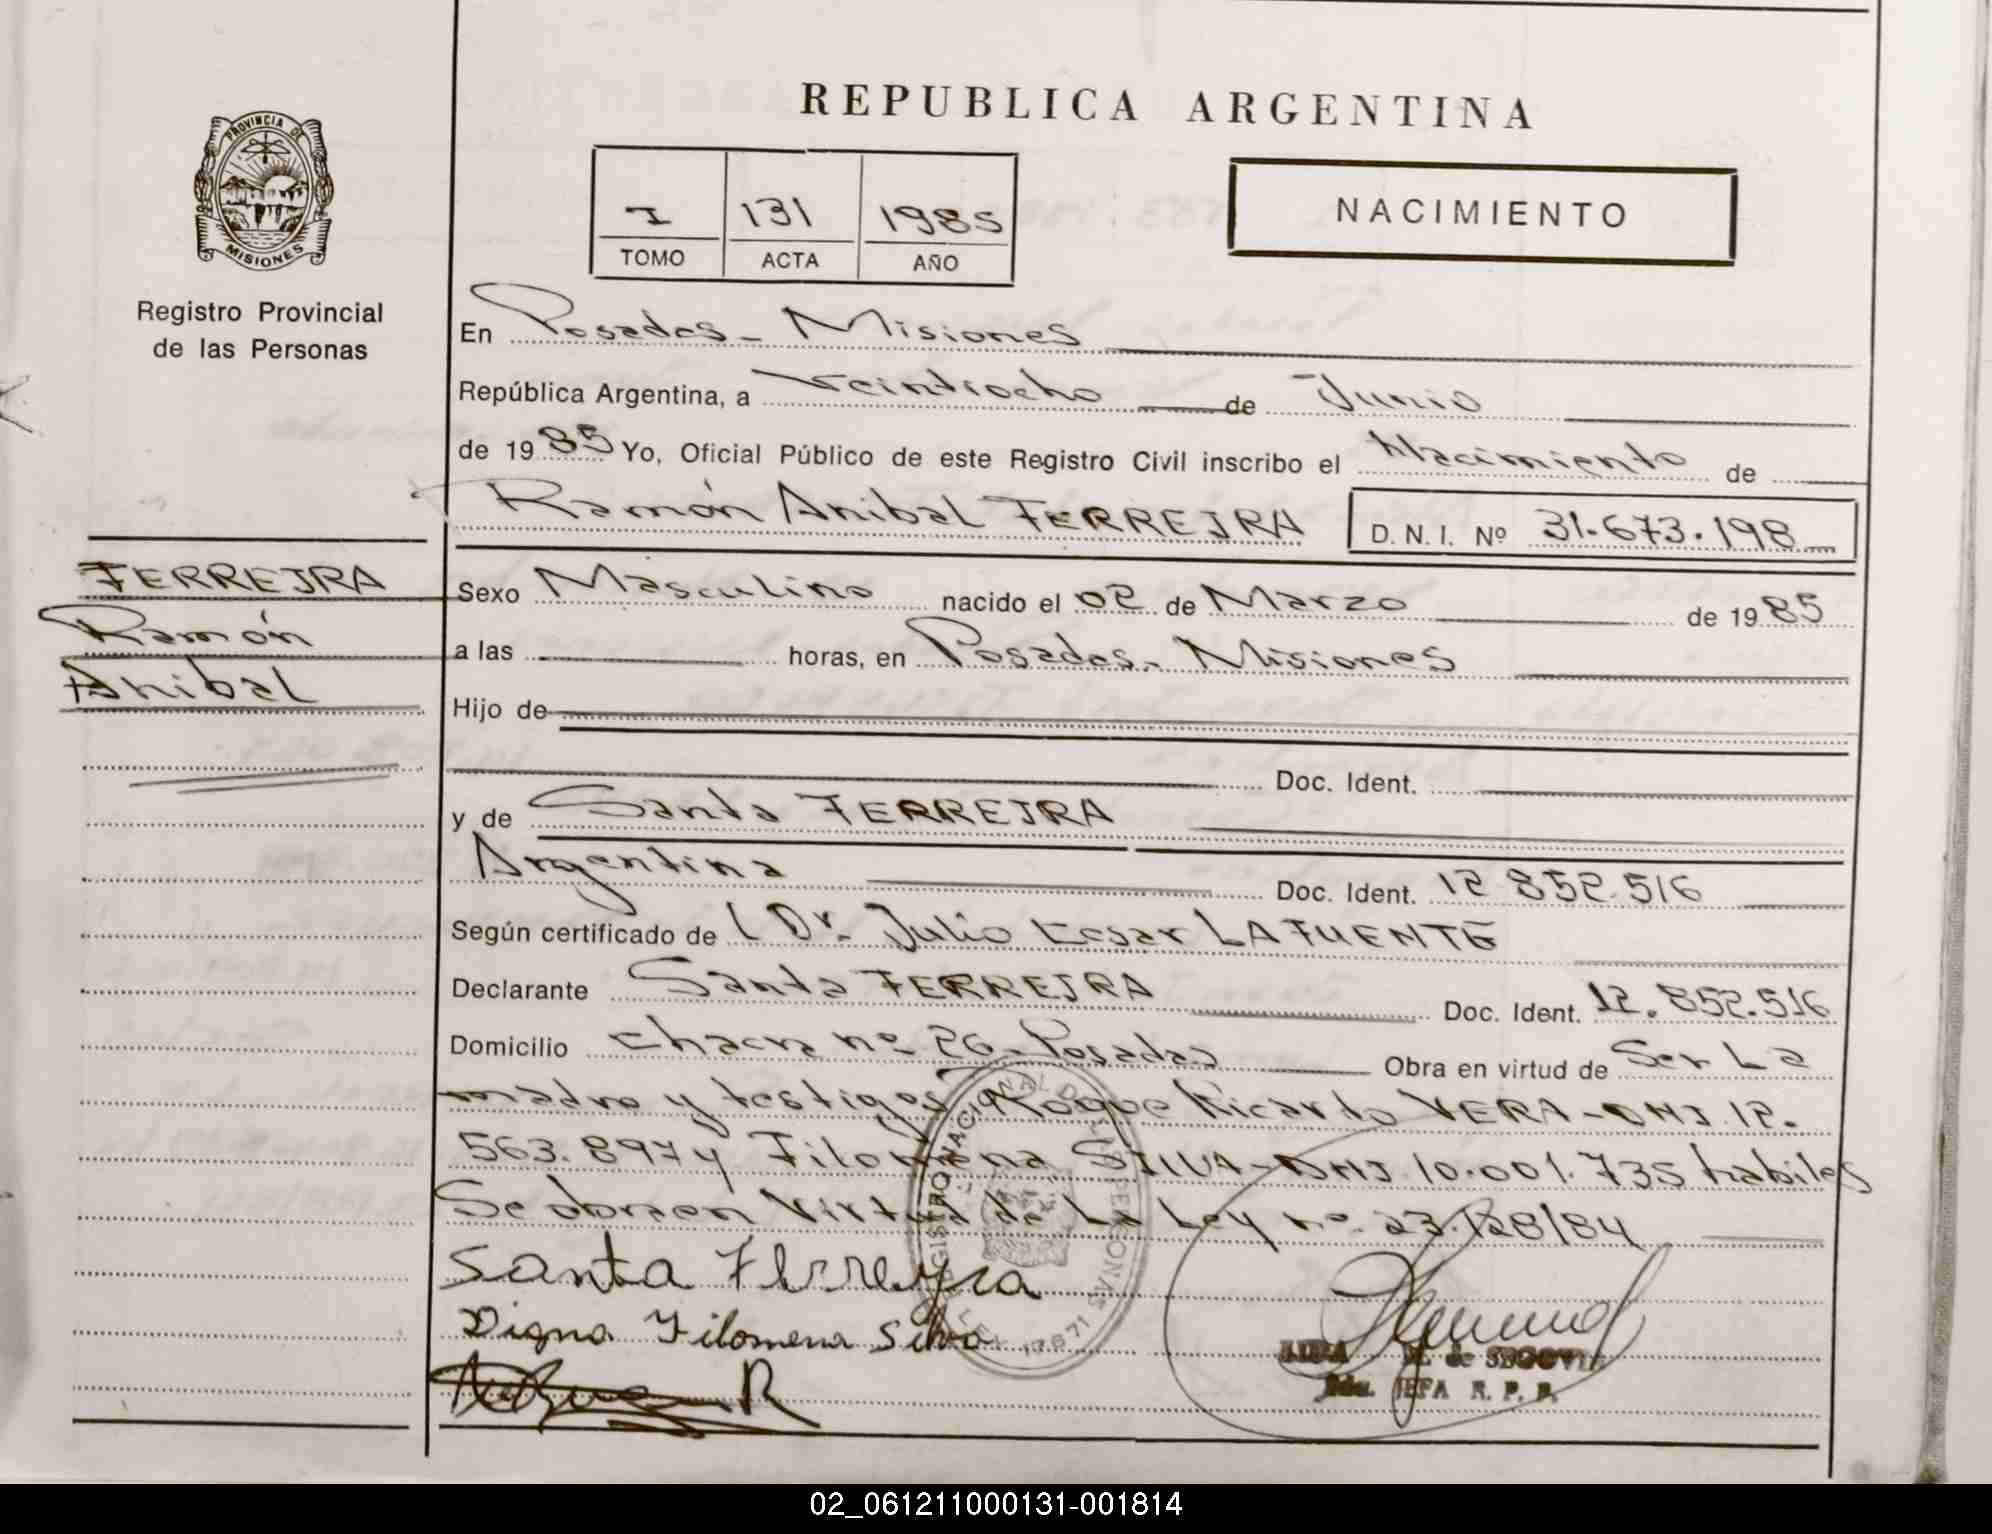 REPUBLICA ARGENTINA
PROVINCIA DE
MISIONES
Registro Provincial
de las Personas
I 131 1985
TOMO ACTA AÑO
NACIMIENTO
En Posadas - Misiones
República Argentina, a Veintiocho de Junio
de 1985 Yo, Oficial Público de este Registro Civil inscribo el Nacimiento de
Ramón Anibal FERREIRA D. N. I. Nº 31.673.198
FERREIRA
Ramón
Anibal
Sexo Masculino nacido el 02 de Marzo de 1985
a las horas, en Posadas - Misiones
Hijo de
Doc. Ident.
y de Santa FERREIRA
Argentina Doc. Ident. 12 852.516
Según certificado de Dr. Julio Cesar LAFUENTE
Declarante Santa FERREIRA Doc. Ident. 12.852.516
Domicilio Chacra nº 26 - Posadas Obra en virtud de Ser La
madre y testigos Roque Ricardo VERA - DNI. 12.
563.897 y Filomena SILVA - DNI. 10.001.735 habiles
Se obra en Virtud de La Ley nº 23.128/84
Santa Ferreyra
Digna Filomena Silva
R
de SEGOVIA
JEFA R. P. P.
REGISTRO NACIONAL DE LAS PERSONAS
LEY 17671
02_061211000131-001814